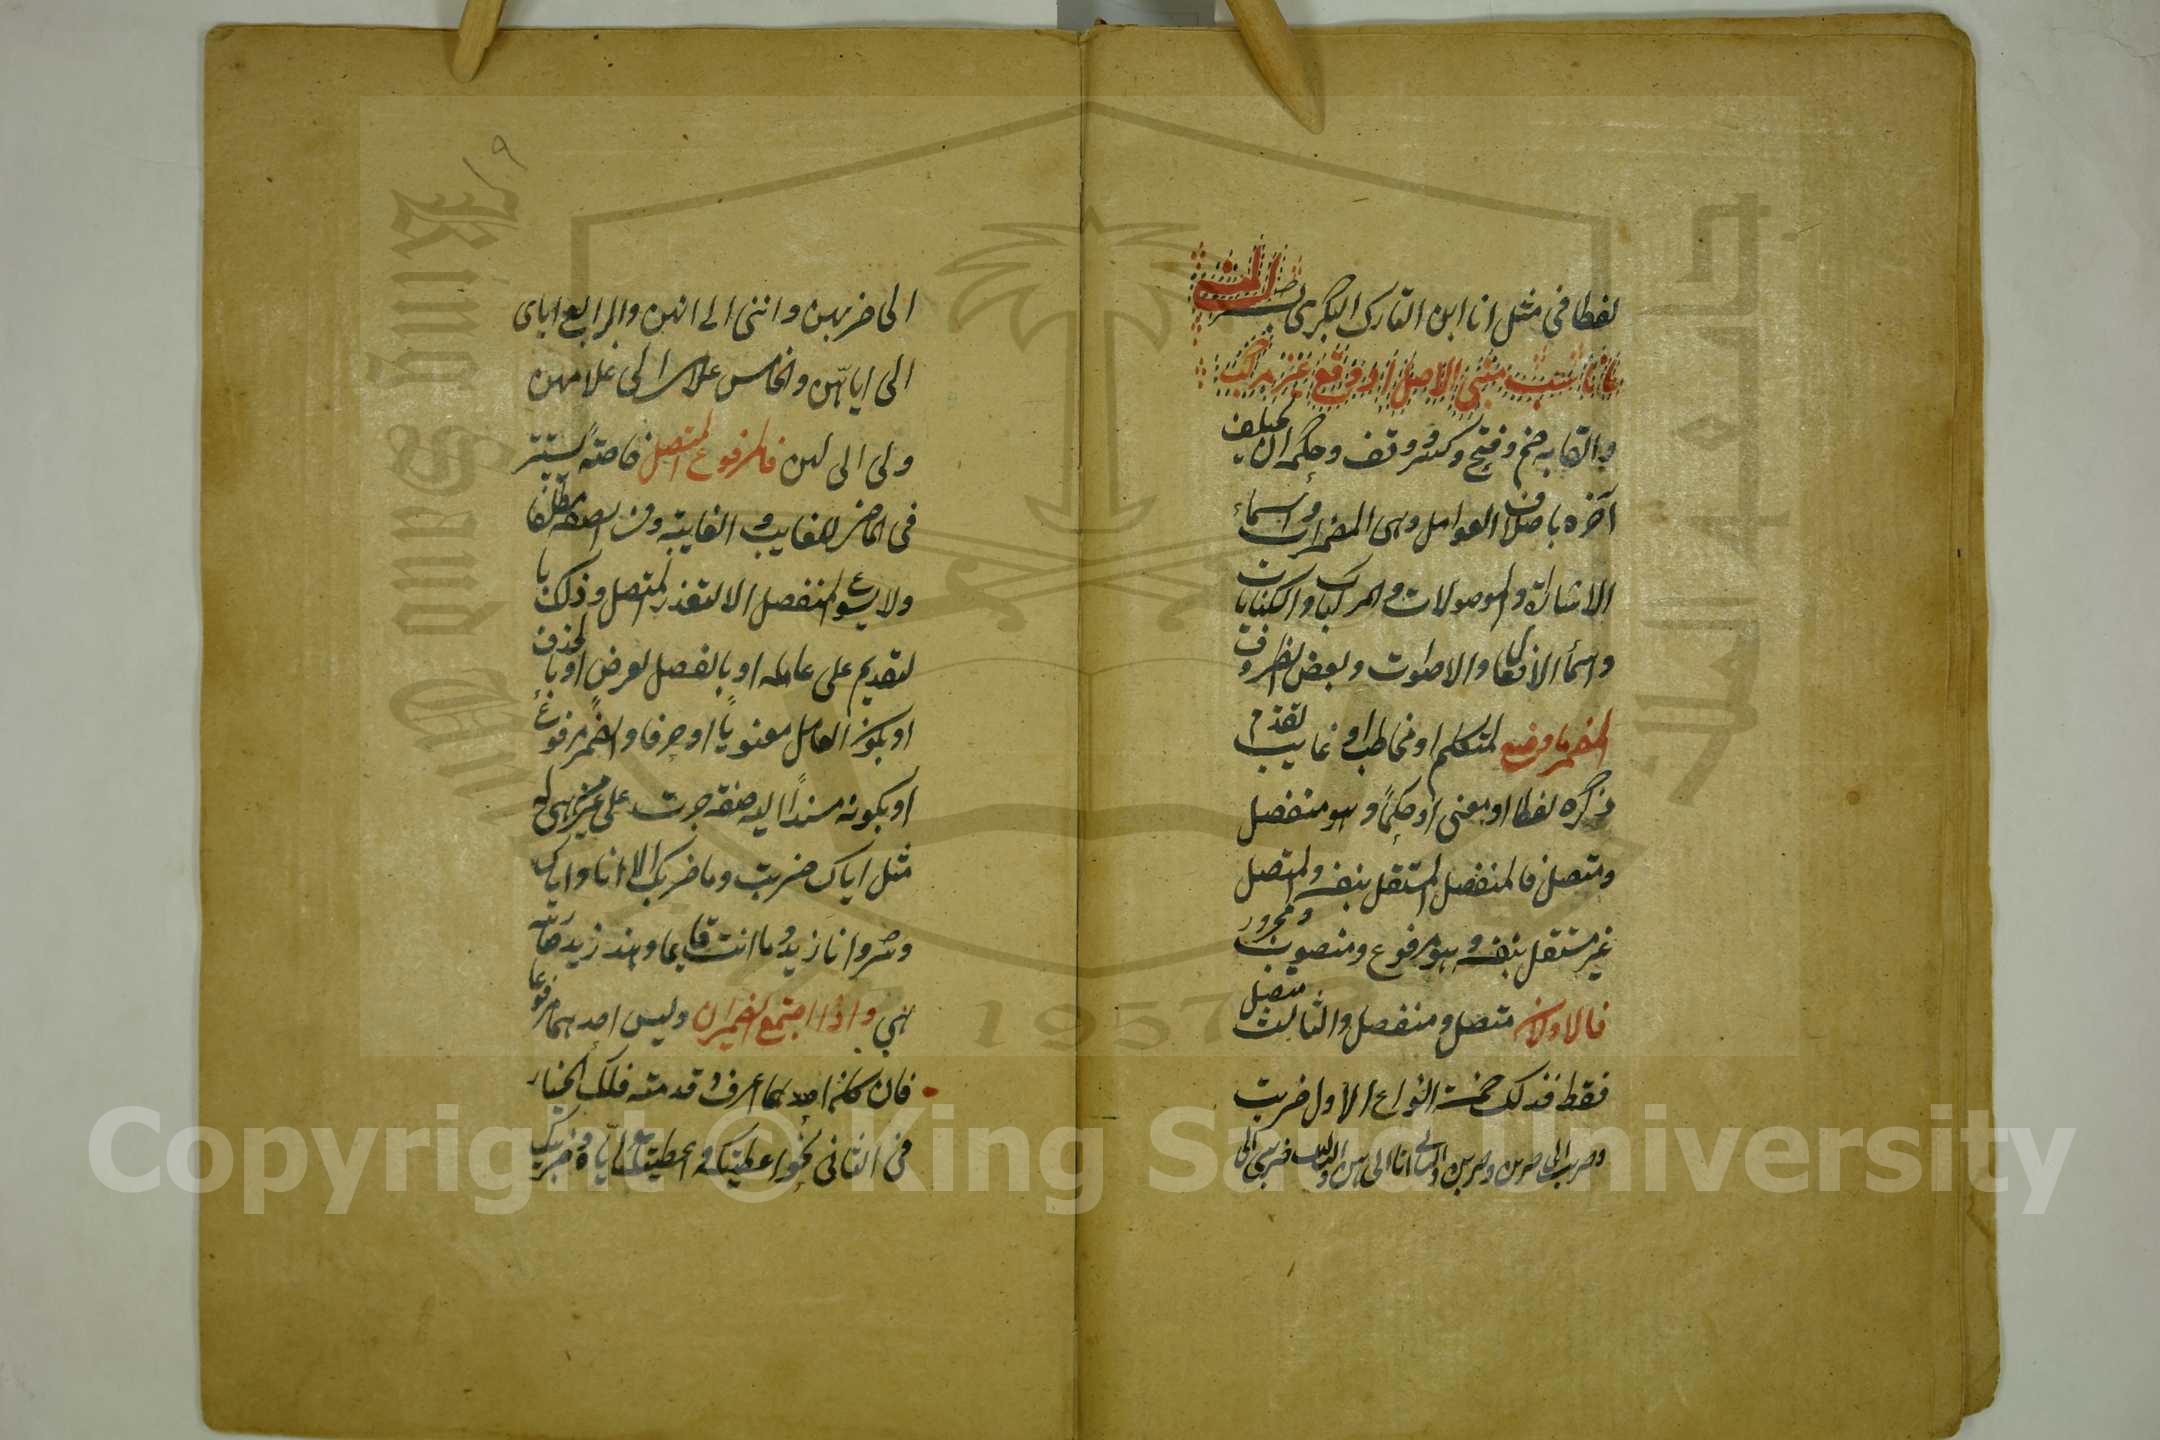 لفظا فى مثل انا ابن التارك البكرى بشر المبنى
ما ناسب مبنى الاصل او وقع غير مركب
والقابه ضم وفتح وكسر ووقف وحكمه ان لا يختلف
آخره باختلاف العوامل وهى المضمرات واسماء
الاشارة والموصولات والمركبات والكنايات
واسماء الافعال والاصوات وبعض الظروف
المضمر ما وضع لمتكلم او مخاطب او غايب تقدم
ذكره لفظا او معنى او حكماً وهو منفصل
ومتصل فالمنفصل المستقل بنفسه والمتصل
غير مستقل بنفسه وهو مرفوع ومنصوب ومجرور
فالاولان متصل ومنفصل والثالث متصل
فقط فذلك خمسة انواع الاول ضربت
وضربت الى ضربن وضربن والثانى انا الى هن والثالث ضربنى الى
١٩
الى ضربهن واننى الى انهن والرابع اياى
الى اياهن والخامس غلامى الى غلامهن
ولى الى لهن فالمرفوع المتصل خاصة يستتر
فى الماضى للغايب والغايبة وفى الصفة مطلقا
ولا يسوغ المنفصل الا لتعذر المتصل وذلك با
لتقديم على عامله او بالفصل لغرض او بالحذف
او بكون العامل معنوياً او حرفا والضمير مرفوع
او بكونه مسنداً اليه صفة جرت على غير من هى له
مثل اياك ضربت وما ضربك الا انا واياك
والشر وانا زيد وما انت قايما وهند زيد ضاربته
هى واذا اجتمع الضميران وليس احدهما مرفوعا
فان كان احدهما اعرف وقدمته فلك الخيار
فى الثانى نحو اعطيتكه واعطيتك اياه وضربيك
King Saud University
جامعة الملك سعود
1957
Copyright © King Saud University